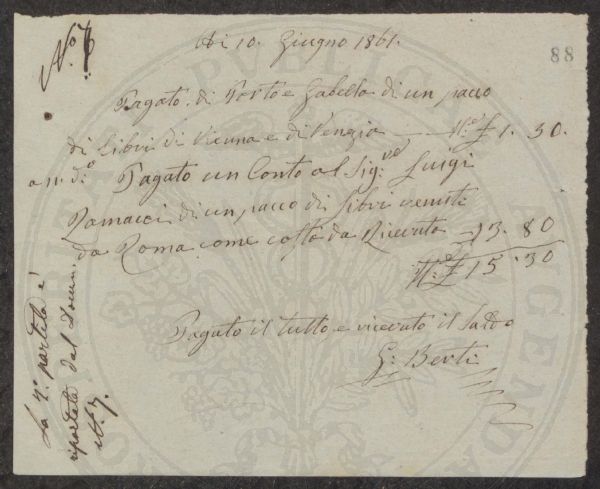 N.º 7
Di 10. Giugno 1861.
88
Pagato di Porto e Gabella di un pacco
di Libri di Vienna e di Venezia — N.e £ 1. 30.
a m. d.º Pagato un Conto al Sig.re Luigi
Ramacci di un pacco di Libri venuti
da Roma come costa da Ricevuta — 13. 80
£ 15. 30
Pagato il tutto e ricevuto il saldo
G: Berti
La 2.ª partita è
riportata dal Docum.
N.º 7.
PUBLICO